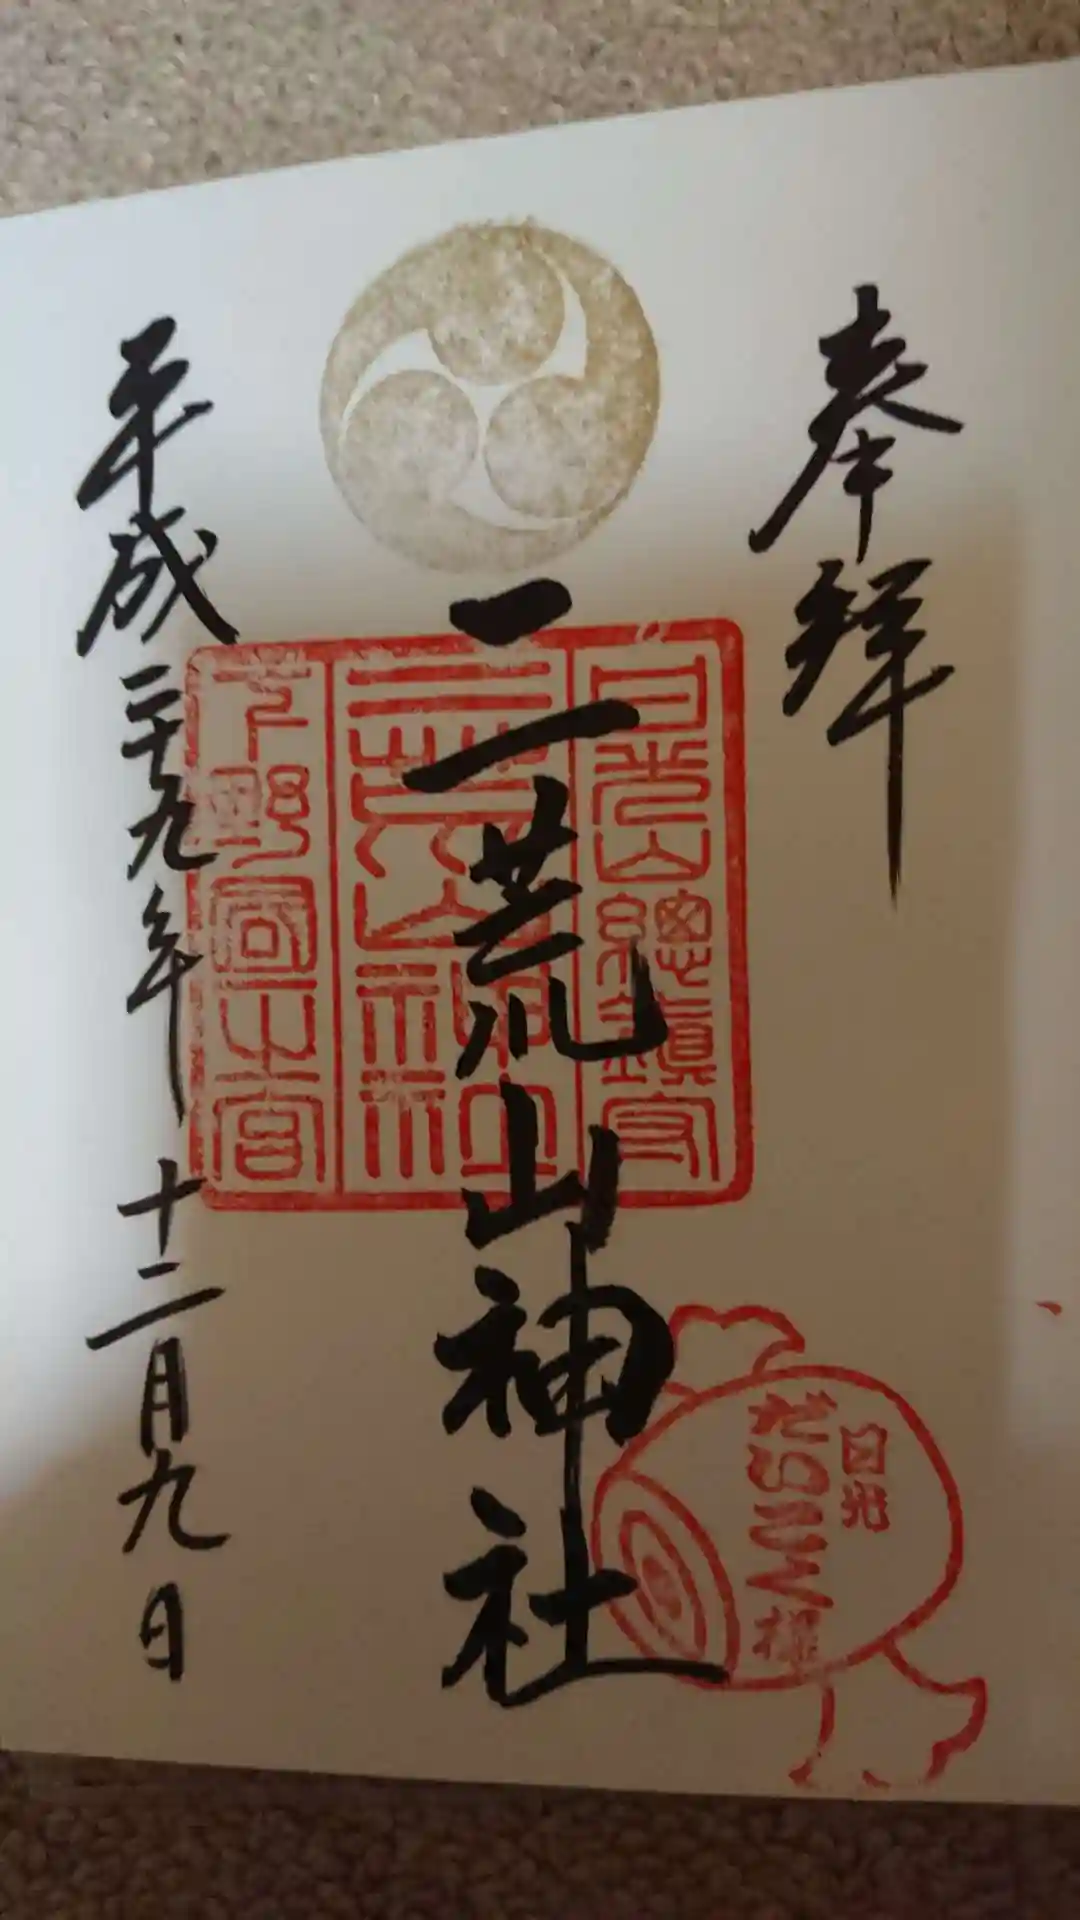 奉拝
日光山總鎮守
二荒山神社
下野國一之宮
二荒山神社
日光
だいこく様
平成二十九年十二月九日